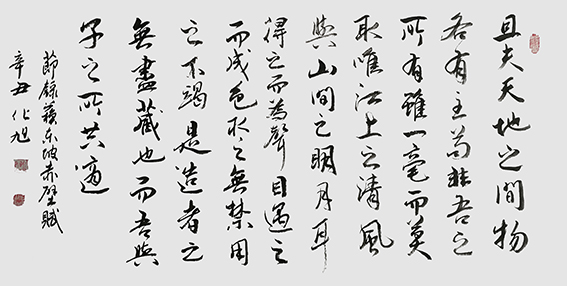 且夫天地之間物
各有主苟非吾之
所有雖一毫而莫
取唯江上之清風
與山間之明月耳
得之而為聲目遇之
而成色取之無禁用
之不竭是造者之
無盡藏也而吾與
子之所共適
節錄蘇東坡赤壁賦
辛丑化旭